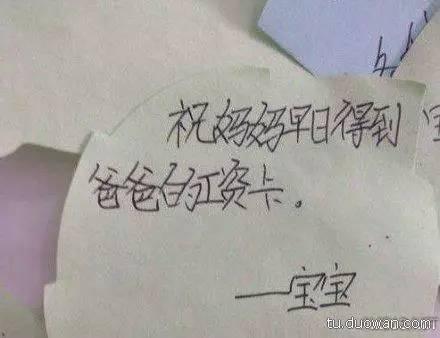 祝妈妈早日得到
爸爸的工资卡。
——宝宝
tu.duowan.com